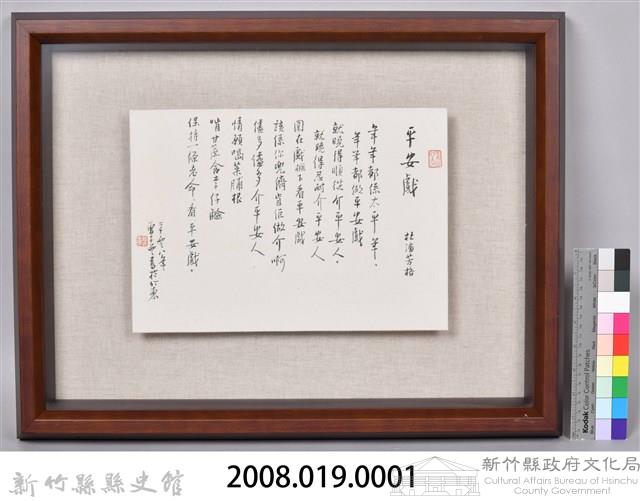 平安戲
杜潘芳格
年年都係太平年。
年年都做平安戲
就曉得順從介平安人。
就曉得忍耐介平安人
圍在戲棚下看平安戲
該係你兜儕肯佢做介啊
儘多儘多介平安人
情願嚙菜脯根
啃甘蔗含李仔鹹
保持一條老命，看平安戲。
新竹縣縣史館
2008.019.0001
新竹縣政府文化局
Cultural Affairs Bureau of Hsinchu
County Government
Kodak Color Control Patches